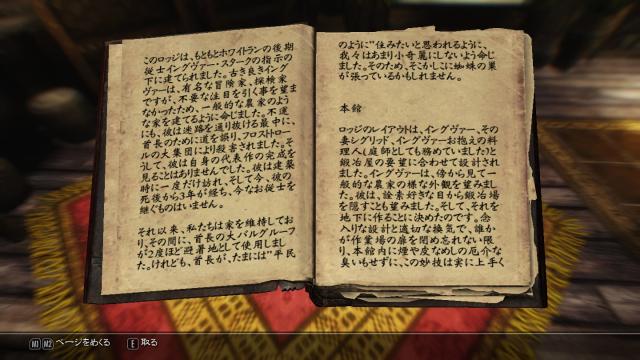 このロッジは、もともとホワイトランの後期
従士イングヴァー・スタークの指示の
下に建てられました。古き良きイング
ヴァーは、有名な冒険家、探検家
ですが、不要な注目を引く事を望ま
なかったため、一般的な農家のよう
な家を建てるように命じました。不運
にも、彼は迷路を通り抜ける最中に、
首長のために道を誤り、フロストロー
ルの大集団により殺害されました。そ
うして、彼は自身の代表作の完成を
見ることはありませんでした。彼は建築
時に一度だけ訪れ、そして今、彼の
死後から3年が経ち、今なお従士を
継ぐものはいません。
それ以来、私たちは家を維持してお
り、その間に、首長の大バルグルーフ
が2度ほど避暑地として使用しまし
た。けれども、首長が、たまには"平民
のように"住みたいと思われるように、
我々はあまり小奇麗にしないよう命じ
ました。そのため、そこかしこに蜘蛛の巣
が張っているかもしれません。
本館
ロッジのレイアウトは、イングヴァー、その
妻シグリッド、イングヴァーお抱えの料
理人(庭師としても務めていました)と
鍛冶屋の要望に合わせて設計され
ました。イングヴァーは、傍から見て一
般的な農家の様な外観を望みまし
た。彼は、詮索好きな目から鍛冶場
を隠すことも望みました。そして、それを
地下に作ることに決めたのです。念
入りな設計と適切な換気で、誰か
が作業場の扉を閉め忘れない限
り、本館内に煙や皮なめしの厄介な
臭いもせずに、この妙技は実に上手く
M1 M2 ページをめくる E 取る